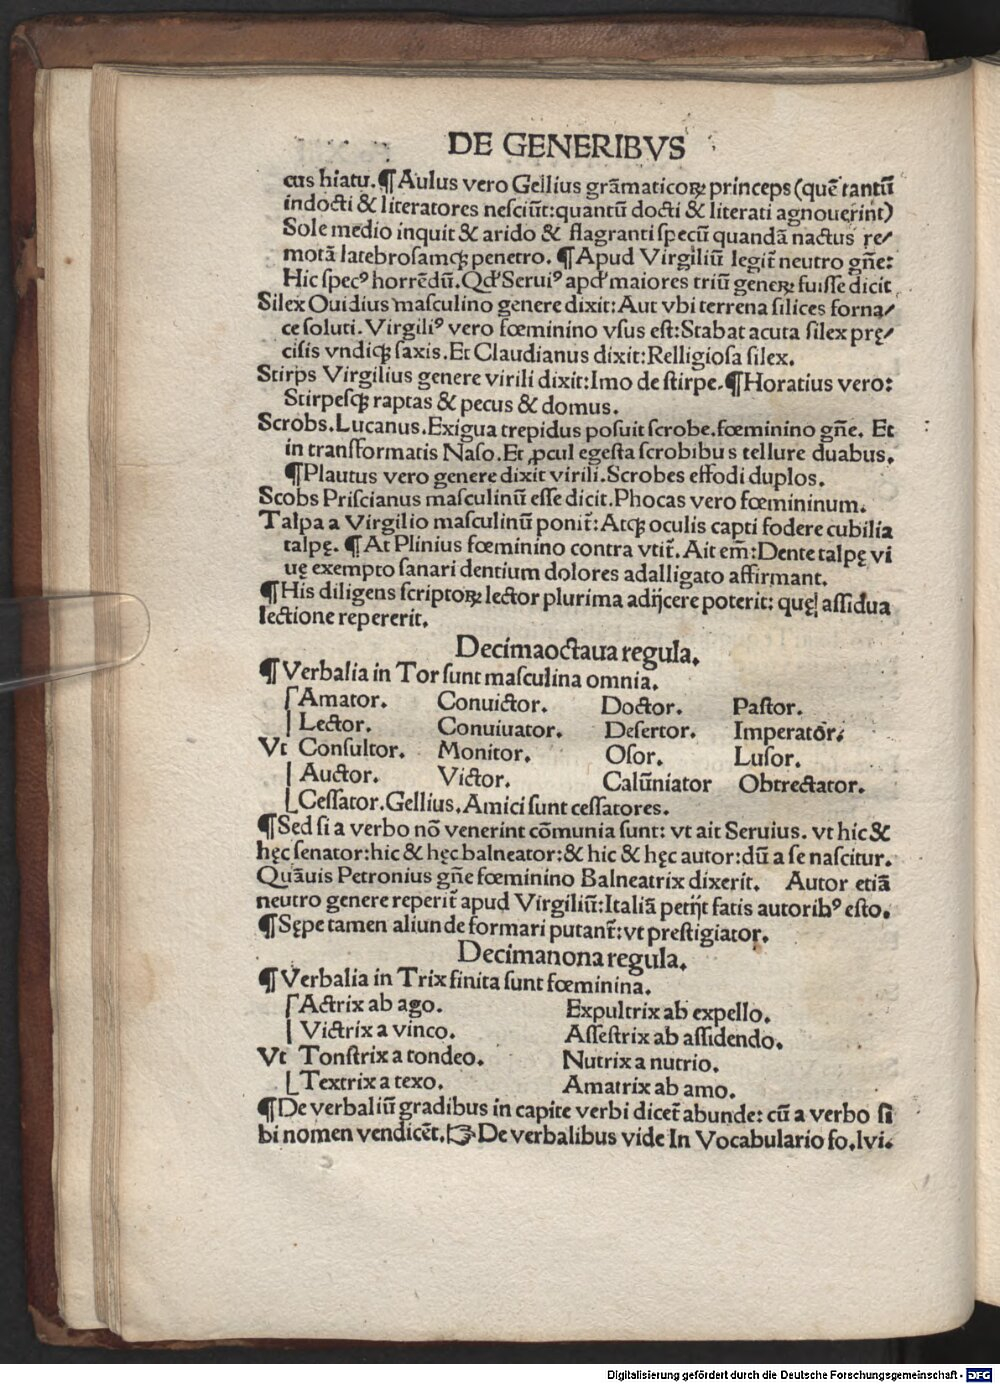 DE GENERIBVS
cus hiatu.¶Aulus vero Gellius grãmaticoꝝ princeps(quẽ tantũ
indocti & literatores nesciũt:quantũ docti & literati agnouerint)
Sole medio inquit & arido & flagranti specũ quandã nactus re⸗
motã latebrosamqꝫ penetro. ¶Apud Virgiliũ legit̃ neutro gñe:
Hic specꝰ horrẽdũ.Qđ Seruiꝰ apđ maiores triũ geneꝝ fuisse dicit
Silex Ouidius masculino genere dixit:Aut vbi terrena silices forna⸗
ce soluti.Virgiliꝰ vero fœminino vsus est:Stabat acuta silex prę⸗
cisis vndiqꝫ saxis.Et Claudianus dixit:Relligiosa silex.
Stirps Virgilius genere virili dixit:Imo de stirpe.¶Horatius vero:
Stirpesqꝫ raptas & pecus & domus.
Scrobs.Lucanus.Exigua trepidus posuit scrobe.fœminino gñe. Et
in transformatis Naso.Et ꝓcul egesta scrobibus tellure duabus.
¶Plautus vero genere dixit virili.Scrobes effodi duplos.
Scobs Priscianus masculinũ esse dicit.Phocas vero fœmininum.
Talpa a Virgilio masculinũ ponit̃:Atqꝫ oculis capti fodere cubilia
talpę. ¶At Plinius fœminino contra vtit̃.Ait em̃:Dente talpę vi
uę exempto sanari dentium dolores adalligato affirmant.
¶His diligens scriptoꝝ lector plurima adijcere poterit: quę assidua
lectione repererit.
Decimaoctaua regula.
¶Verbalia in Tor sunt masculina omnia.
Amator. Conuictor. Doctor. Pastor.
Lector. Conuiuator. Desertor. Imperator.
Vt Consultor. Monitor. Osor. Lusor.
Auctor. Victor. Calũniator Obtrectator.
Cessator.Gellius.Amici sunt cessatores.
¶Sed si a verbo nõ venerint cõmunia sunt: vt ait Seruius. vt hic &
hęc senator:hic & hęc balneator:& hic & hęc autor:dũ a se nascitur.
Quãuis Petronius gñe fœminino Balneatrix dixerit. Autor etiã
neutro genere reperit̃ apud Virgiliũ:Italiã petijt fatis autoribꝰ esto.
¶Sępe tamen aliunde formari putant̃:vt prestigiator.
Decimanona regula.
¶Verbalia in Trix finita sunt fœminina.
Actrix ab ago. Expultrix ab expello.
Victrix a vinco. Assestrix ab assidendo.
Vt Tonstrix a tondeo. Nutrix a nutrio.
Textrix a texo. Amatrix ab amo.
¶De verbaliũ gradibus in capite verbi dicet̃ abunde: cũ a verbo si
bi nomen vendicẽt.☞De verbalibus vide In Vocabulario fo.lvi.
Digitalisierung gefördert durch die Deutsche Forschungsgemeinschaft - DFG